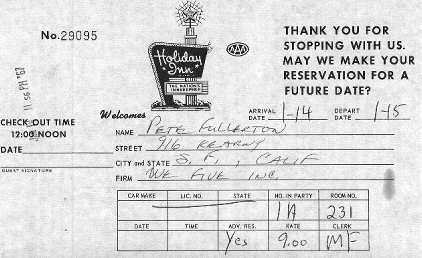 No. 29095
Holiday Inn
THE NATION'S INNKEEPER
AAA
THANK YOU FOR
STOPPING WITH US.
MAY WE MAKE YOUR
RESERVATION FOR A
FUTURE DATE?
11 56 PM '67
CHECK OUT TIME
12:00 NOON
DATE
GUEST SIGNATURE
Welcomes
ARRIVAL DATE 1-14 DEPART DATE 1-15
NAME PETE FULLERTON
STREET 916 KEARNY
CITY and STATE S.F., CALIF
FIRM WE FIVE INC.
CAR MAKE LIC. NO. STATE NO. IN PARTY ROOM NO.
1A 231
DATE TIME ADV. RES. RATE CLERK
Yes 9.00 MF